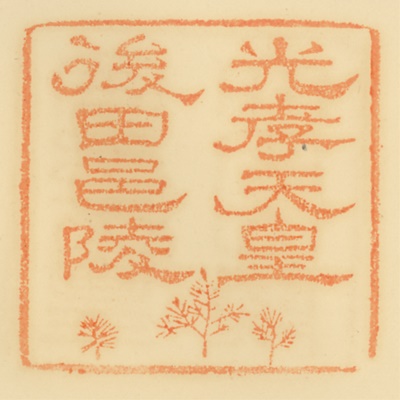 光孝天皇
後田邑陵